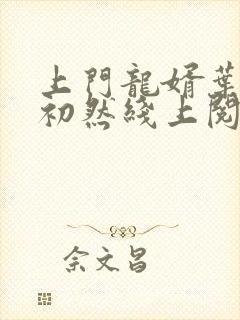 上門龍婿葉
初然綫上閱
佘文昌